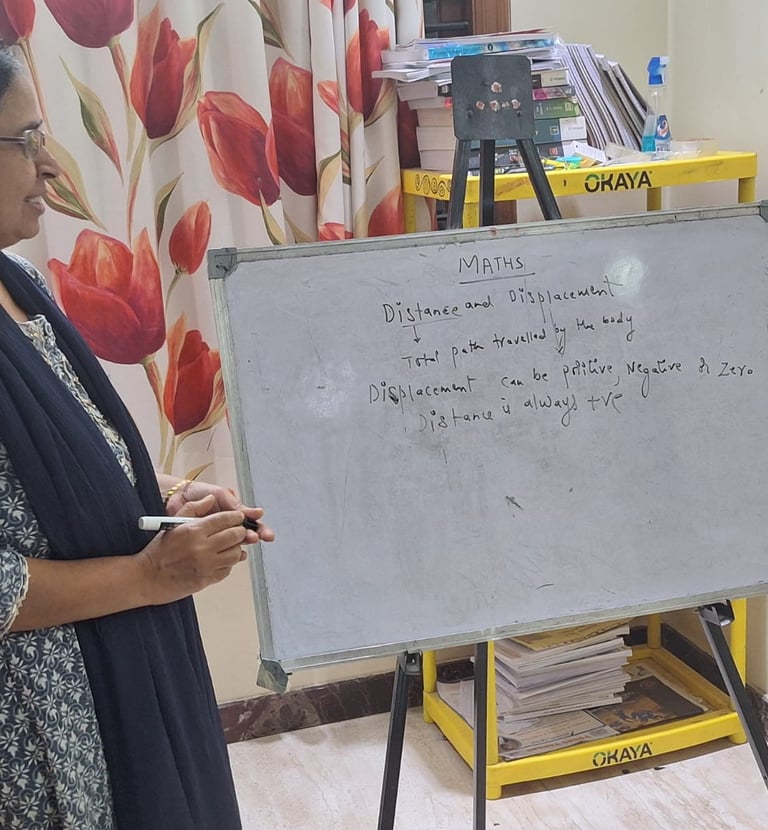 OKAYA
MATHS
Distance and Displacement
Total path travelled by the body
Displacement can be positive, Negative or Zero
Distance is always +ve
OKAYA